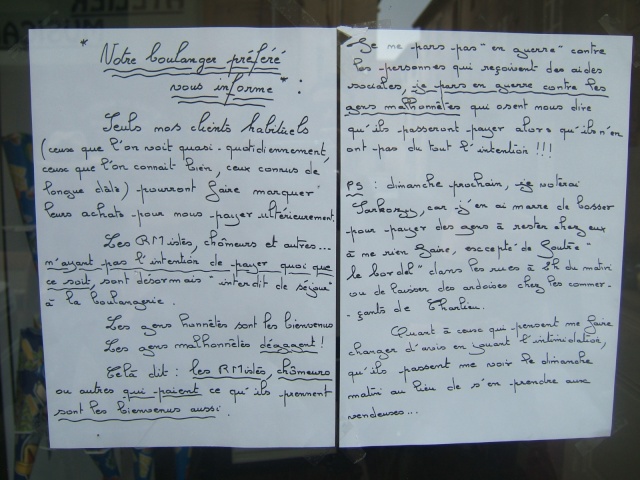 * Notre boulanger préféré
vous informe * :
Seuls mes clients habituels
(ceux que l'on voit quasi-quotidiennement,
ceux que l'on connait bien, ceux connus de
longue date) pourront faire marquer
leurs achats pour nous payer ultérieurement.
Les RMistes, chômeurs et autres...
n'ayant pas l'intention de payer quoi que
ce soit, sont désormais "interdit de séjour"
à la boulangerie.
Les gens honnêtes sont les bienvenus
Les gens malhonnêtes dégagent !
Celà dit : les RMistes, chômeurs
ou autres qui paient ce qu'ils prennent
sont les bienvenus aussi.
Je me pars pas "en guerre" contre
les personnes qui reçoivent des aides
sociales, je pars en guerre contre les
gens malhonnêtes qui osent nous dire
qu'ils passeront payer alors qu'ils n'en
ont pas du tout l'intention !!!
PS : dimanche prochain, je voterai
Sarkozy, car j'en ai marre de bosser
pour payer des gens à rester chez eux
à ne rien faire, excepté de foutre "
le bordel" dans les rues à 2h du matin
ou de laisser des ardoises chez les commer-
-çants de Charlieu.
Quant à ceux qui pensent me faire
changer d'avis en jouant l'intimidation,
qu'ils passent me voir le dimanche
matin au lieu de s'en prendre aux
vendeuses...